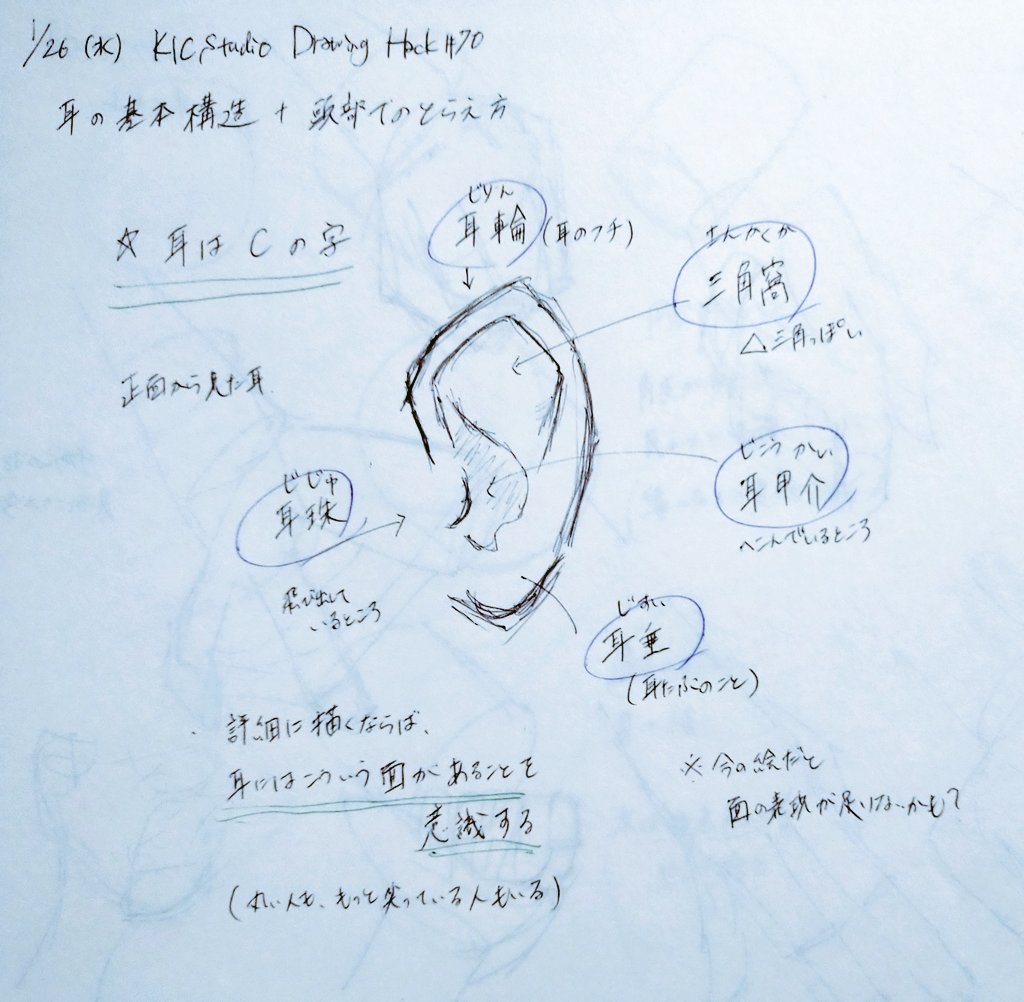 1/26 (水) KIC Studio Drawing Hack #70
耳の基本構造 + 頭部でのとらえ方
☆ 耳は Cの字
じりん
耳輪 (耳のフチ)
さんかくか
三角窩
△三角っぽい
正面から見た耳
じこうかい
耳甲介
へこんでいるところ
じじゅ
耳珠
飛び出して
いるところ
じすい
耳垂
(耳たぶのこと)
詳細に描くならば、
耳にはこういう面があることを
意識する
(丸い人も、もっと尖っている人もいる)
※今の絵だと
面の表現が足りないかも?